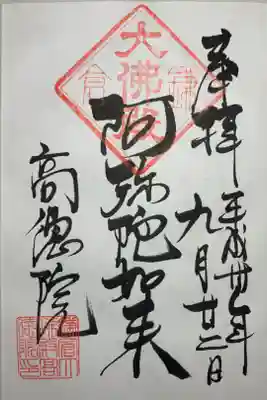 奉拝
平成年
九月廿二日
大佛殿
鎌倉
阿弥陀如来
高徳院